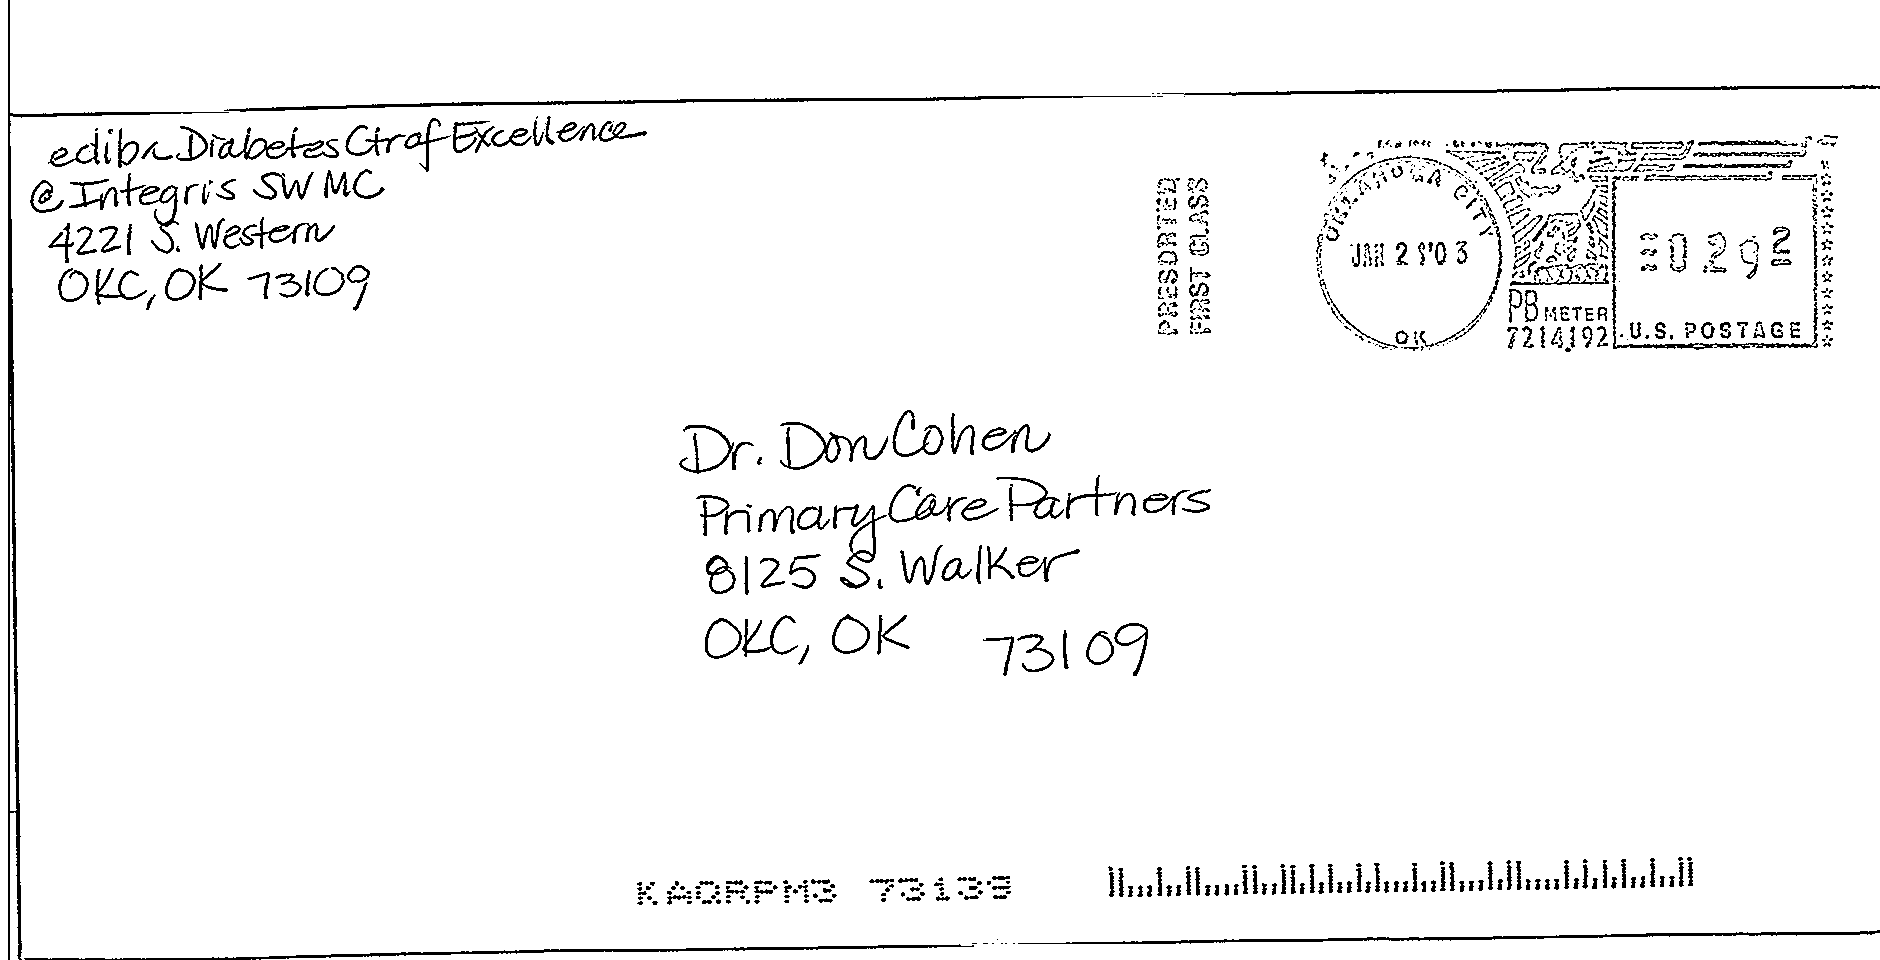 ediba Diabetes Ctr of Excellence
@ Integris SW MC
4221 S. Western
OKC, OK 73109
PRESORTED
FIRST CLASS
OKLAHOMA CITY
JAN 2 9'03
OK
PB METER
7214192
029 2
U.S. POSTAGE
Dr. Don Cohen
Primary Care Partners
8125 S. Walker
OKC, OK 73109
KAQRPM3 73139